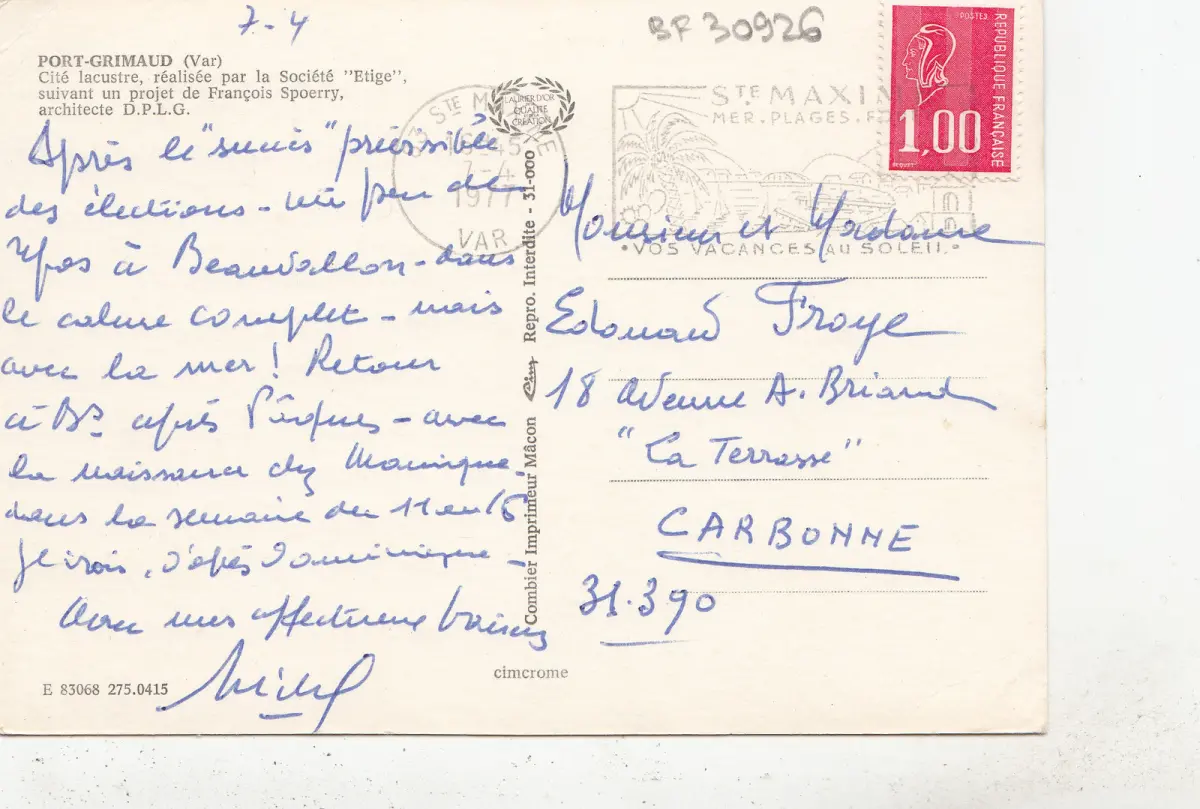 7-4
BF 30926
PORT-GRIMAUD (Var)
Cité lacustre, réalisée par la Société "Etige",
suivant un projet de François Spoerry,
architecte D.P.L.G.
Après le "succès" prévisible
des élections - un peu de
repos à Beauvallon - dans
le calme complet - mais
avec la mer ! Retour
à Bx après Pâques - avec
la naissance chez Monique
dans la semaine du 11 au 16
Je crois, d'après Dominique -
Avec mes affectueux baisers
Michel
E 83068 275.0415
Combier Imprimeur Mâcon Cim Repro. Interdite - 31-000
cimcrome
LAURIER D'OR
QUALITÉ
CRÉATION
83 STE M E
16 45
7-4
1977
VAR
STE MAXIM
MER. PLAGES.
VOS VACANCES AU SOLEIL
POSTES
REPUBLIQUE FRANÇAISE
1,00
BEQUET
Monsieur et Madame
Edouard Froye
18 avenue A. Briand
"La Terrasse"
CARBONNE
31.390